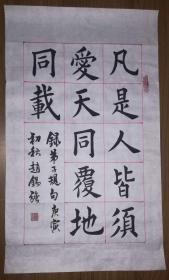 凡是人皆須
愛天同覆地
同載
錄弟子規句 庚寅
初秋趙錫